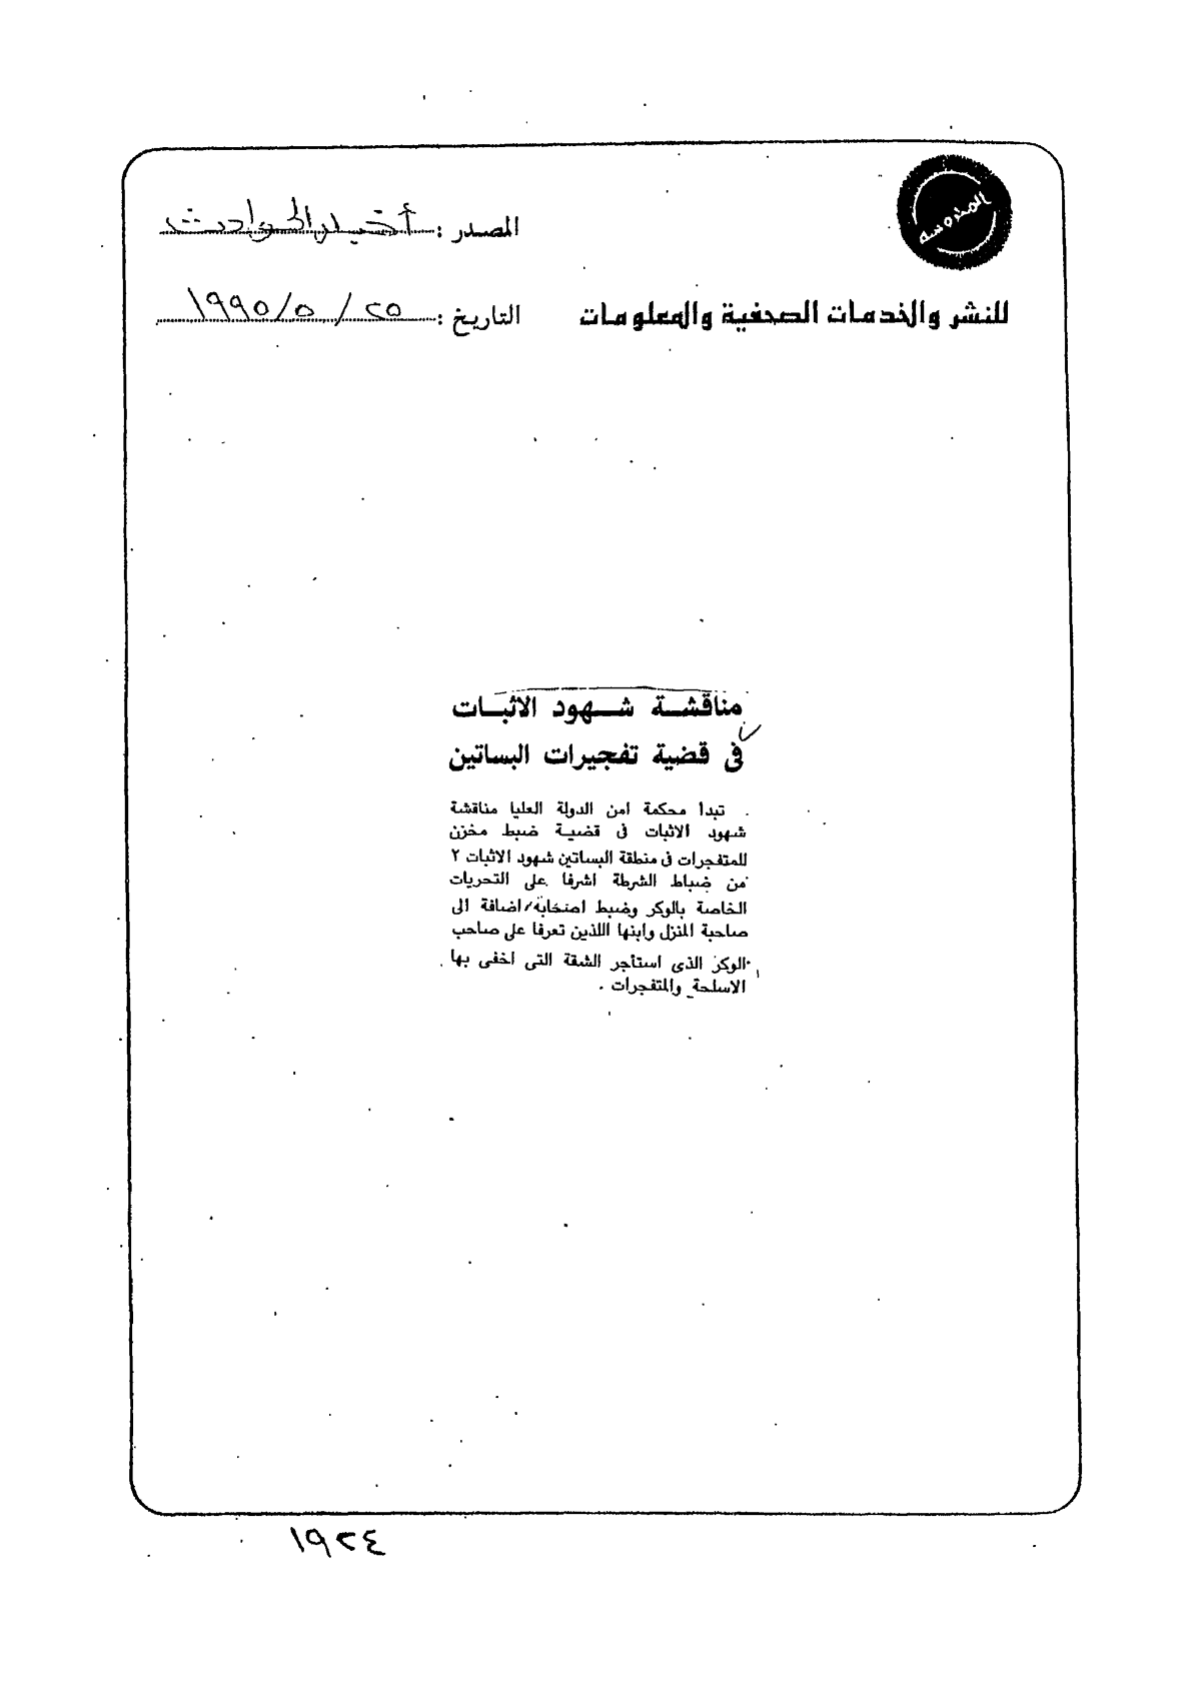 المحروسة
المصدر : أخبار الحوادث
للنشر والخدمات الصحفية والمعلومات
التاريخ : ٢٥ / ٥ / ١٩٩٥
مناقشة شهود الاثبات
فى قضية تفجيرات البساتين
تبدأ محكمة امن الدولة العليا مناقشة
شهود الاثبات فى قضية ضبط مخزن
للمتفجرات فى منطقة البساتين شهود الاثبات ٢
من ضباط الشرطة اشرفا على التحريات
الخاصة بالوكر وضبط اصحابه/ اضافة الى
صاحبة المنزل وابنها اللذين تعرفا على صاحب
الوكر الذى استأجر الشقة التى اخفى بها
الاسلحة والمتفجرات .
١٩٢٤